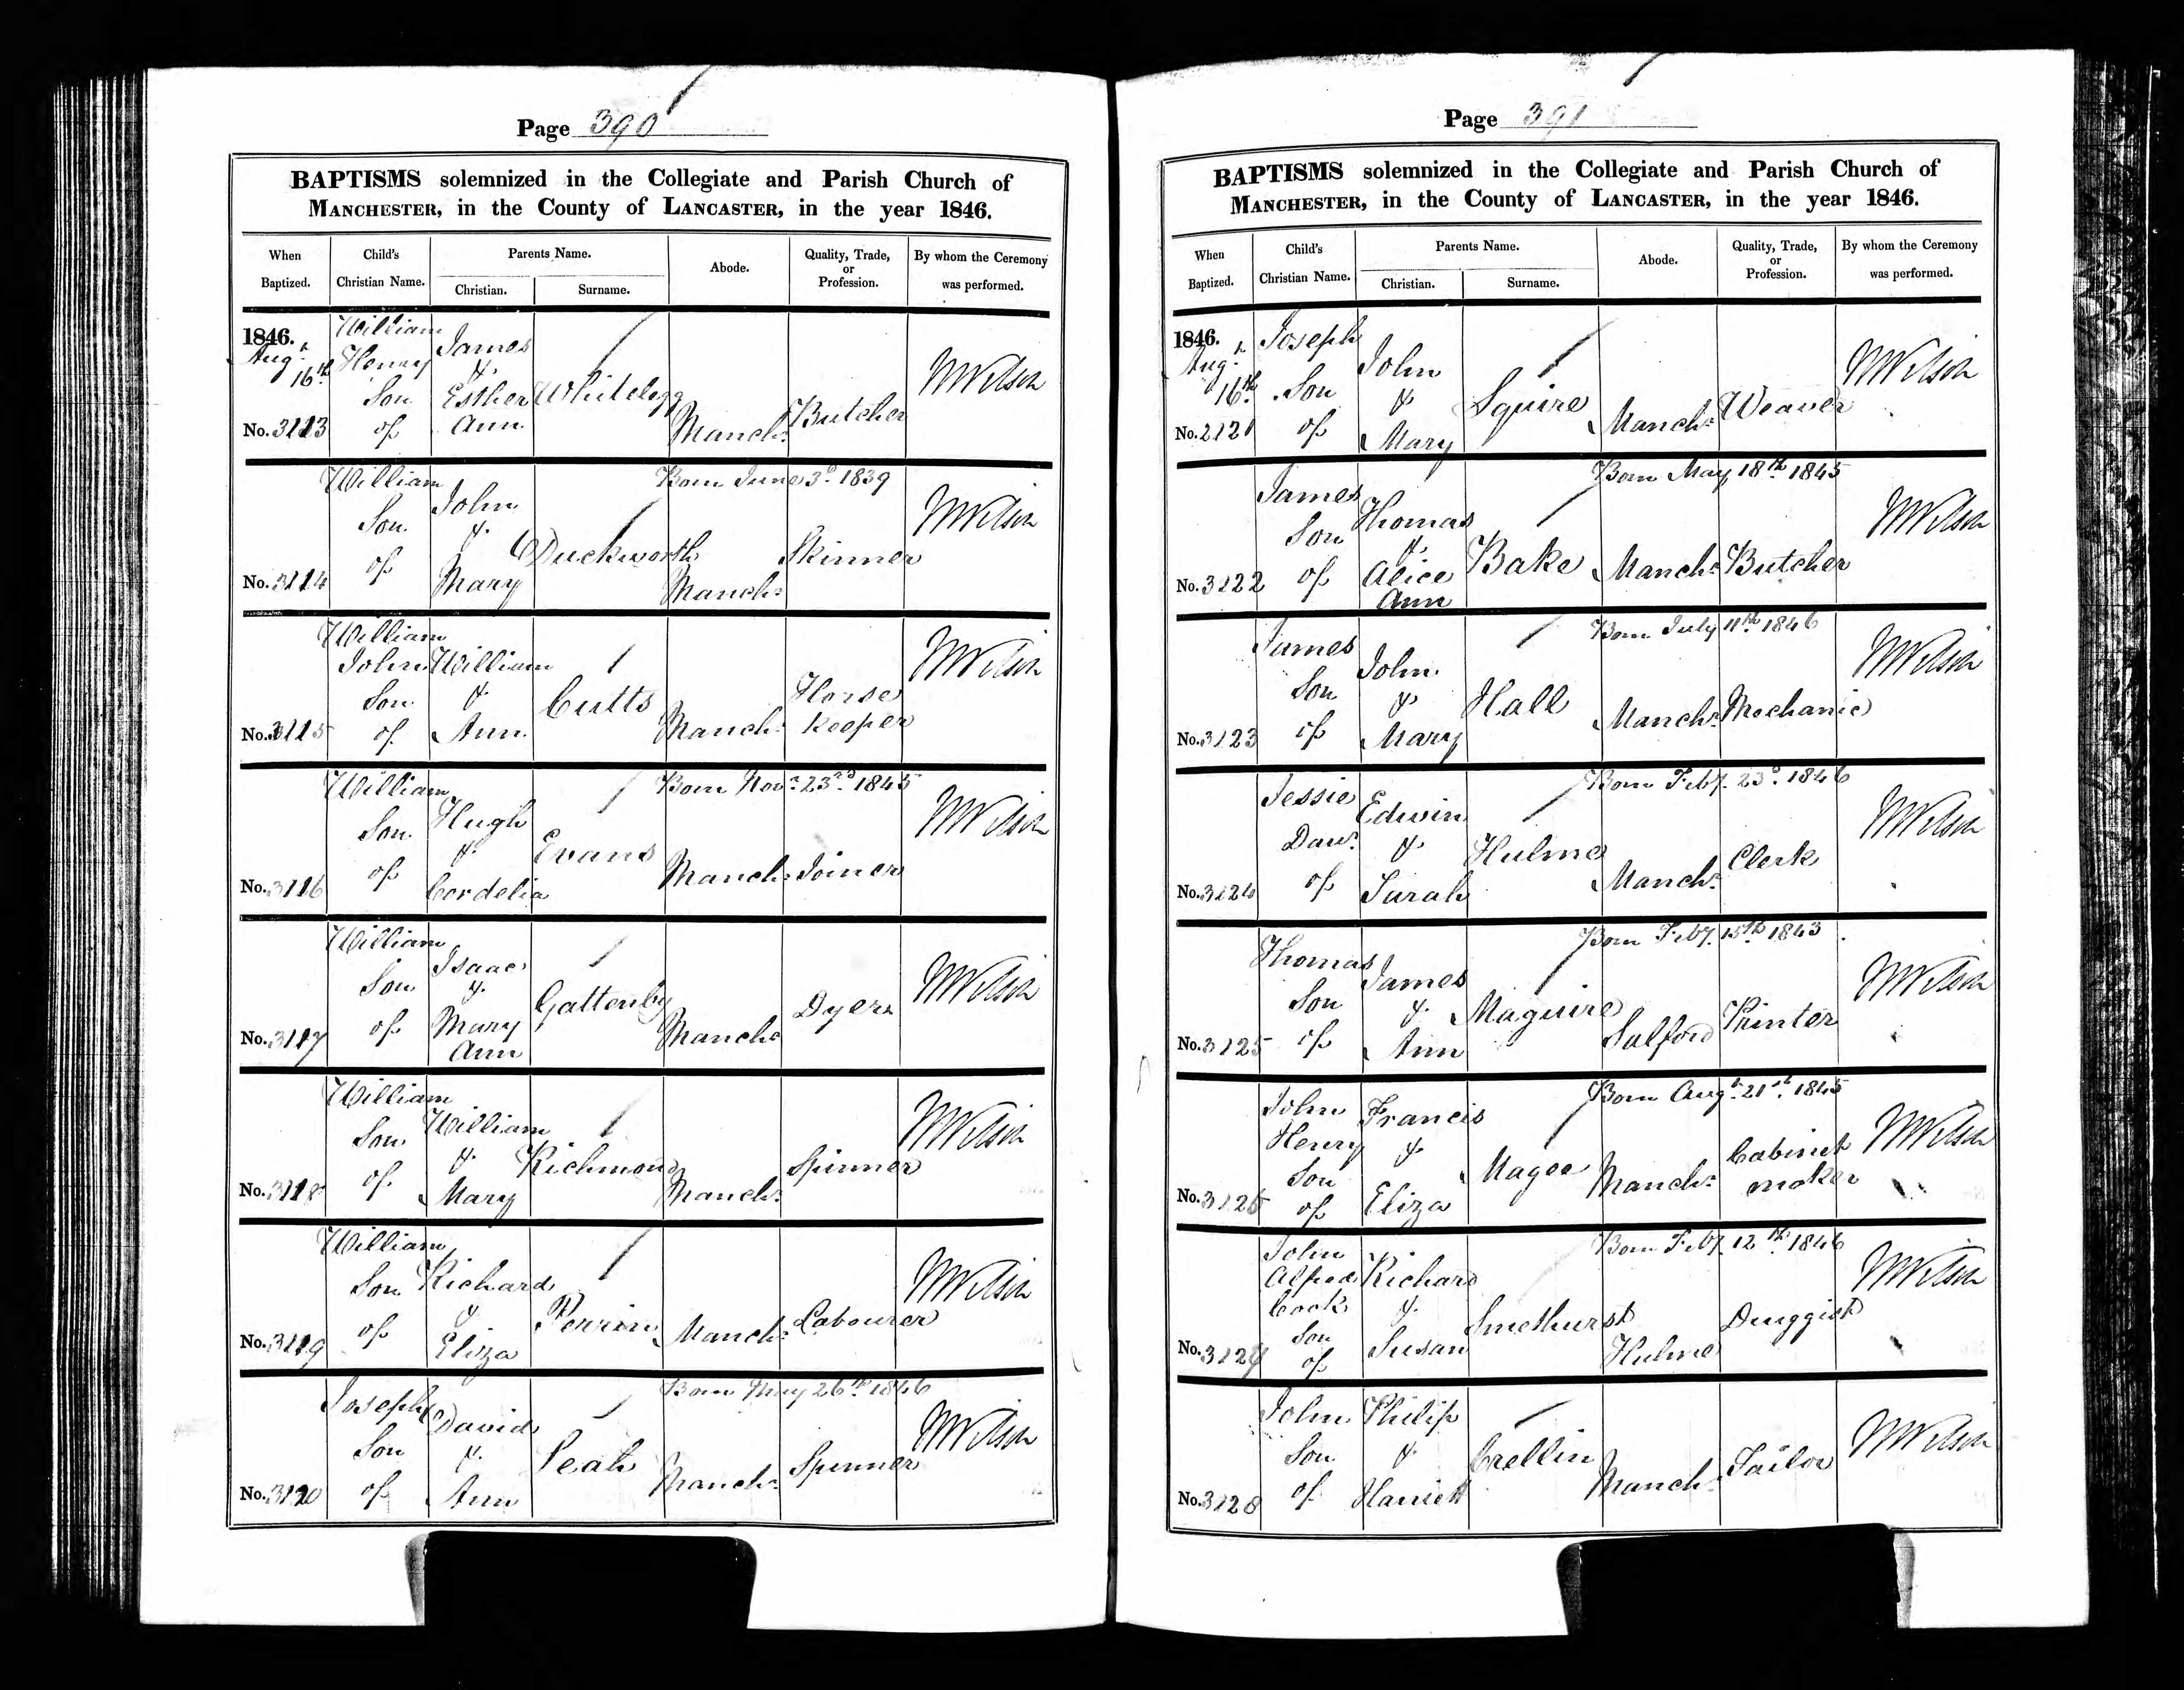 Page 390
BAPTISMS solemnized in the Collegiate and Parish Church of
MANCHESTER, in the County of LANCASTER, in the year 1846.
When Baptized. Child's Christian Name. Parents Name. Christian. Surname. Abode. Quality, Trade, or Profession. By whom the Ceremony was performed.
1846. Augt 16th No. 3113 William Henry Son of James & Esther Ann Whitelegg Manchr Butcher MWilson
Born June 3d 1839
No. 3114 William Son of John & Mary Duckworth Manchr Skinner MWilson
No. 3115 William John Son of William & Ann Cutts Manchr Horse Keeper MWilson
Born Novr 23rd 1845
No. 3116 William Son of Hugh & Cordelia Evans Manchr Joiner MWilson
No. 3117 William Son of Isaac & Mary Ann Gattenby Manchr Dyer MWilson
No. 3118 William Son of William & Mary Richmond Manchr Spinner MWilson
No. 3119 William Son of Richard & Eliza Perrin Manchr Labourer MWilson
Born May 26th 1846
No. 3120 Joseph Son of David & Ann Leah Manchr Spinner MWilson
Page 391
BAPTISMS solemnized in the Collegiate and Parish Church of
MANCHESTER, in the County of LANCASTER, in the year 1846.
When Baptized. Child's Christian Name. Parents Name. Christian. Surname. Abode. Quality, Trade, or Profession. By whom the Ceremony was performed.
1846. Augt 16th No. 2121 Joseph Son of John & Mary Squire Manchr Weaver MWilson
Born May 18th 1845
No. 3122 James Son of Thomas & Alice Ann Bake Manchr Butcher MWilson
Born July 11th 1846
No. 3123 James Son of John & Mary Hall Manchr Mechanic MWilson
Born Feby 23d 1846
No. 3124 Jessie Daur of Edwin & Sarah Hulme Manchr Clerk MWilson
Born Feby 15th 1843
No. 3125 Thomas Son of James & Ann Maguire Salford Printer MWilson
Born Augt 21st 1845
No. 3126 John Henry Son of Francis & Eliza Magee Manchr Cabinet maker MWilson
Born Feby 12th 1846
No. 3127 John Alfred Cock Son of Richard & Susan Smethurst Hulme Druggist MWilson
No. 3128 John Son of Philip & Harriett Crellin Manchr Tailor MWilson